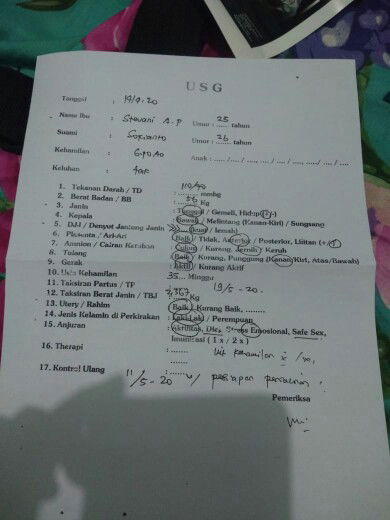 USG
Tanggal : 19/4-20
Nama Ibu : Stevani A.P Umur : 25 tahun
Suami : Umur : 26 tahun
Kehamilan : G1P0A0 Anak : ..... / ..... / ..... / ..... / .....
Keluhan :
1. Tekanan Darah / TD : 110/70 mmhg
2. Berat Badan / BB : 56 Kg
3. Janin : Tunggal / Gemeli, Hidup (+/-)
4. Kepala : Bawah / Melintang (Kanan-Kiri) / Sungsang
5. DJJ / Denyut Jantung Janin : (kuat / lemah)
6. Placenta / Ari-Ari : Baik / Tidak, Anterior / Posterior, Lilitan (+/-)
7. Amnion / Cairan Ketuban : Cukup / Kurang, Jernih / Keruh
8. Tulang : Baik / Kurang, Punggung (Kanan/Kiri, Atas/Bawah)
9. Gerak : Aktif / Kurang Aktif
10. Usia Kehamilan : 35 Minggu
11. Taksiran Partus / TP : 19/5-20.
12. Taksiran Berat Janin / TBJ : Kg
13. Utery / Rahim : Baik / Kurang Baik, ........
14. Jenis Kelamin di Perkirakan : Laki-Laki / Perempuan
15. Anjuran : Aktifitas, Diet Stress Emosional, Safe Sex,
Imunisasi ( 1 x / 2 x )
16. Therapi : .......
17. Kontrol Ulang : 11/5-20 persiapan persalinan
Pemeriksa